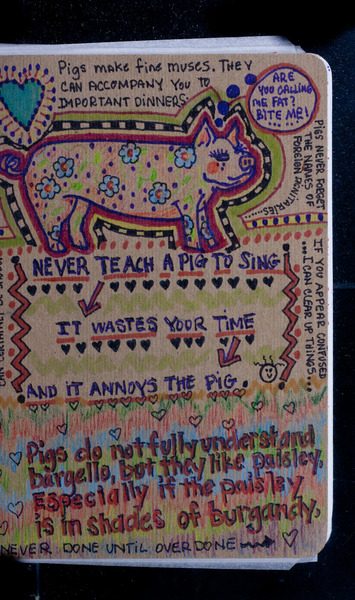 Pigs make fine muses. THEY
CAN ACCOMPANY YOU TO
IMPORTANT DINNERS.
ARE
YOU CALLING
ME FAT?
BITE ME!
PIGS NEVER FORGET
THE NAMES OF
FOREIGN DIGNITARIES...
NEVER TEACH A PIG TO SING
IT WASTES YOUR TIME
AND IT ANNOYS THE PIG.
IF YOU APPEAR CONFUSED
...I CAN CLEAR UP THINGS...
Pigs do not fully understand
bargello, but they like paisley,
Especially if the paisley
is in shades of burgandy.
NEVER DONE UNTIL OVERDONE